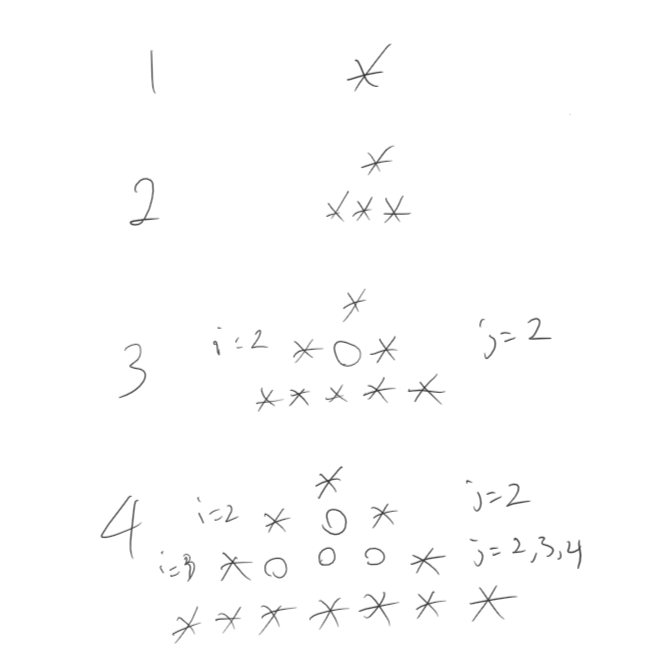 1 *
*
2 ***
*
3 i=2 *O* j=2
*****
*
4 i=2 *O* j=2
i=3 *OOO* j=2,3,4
*******